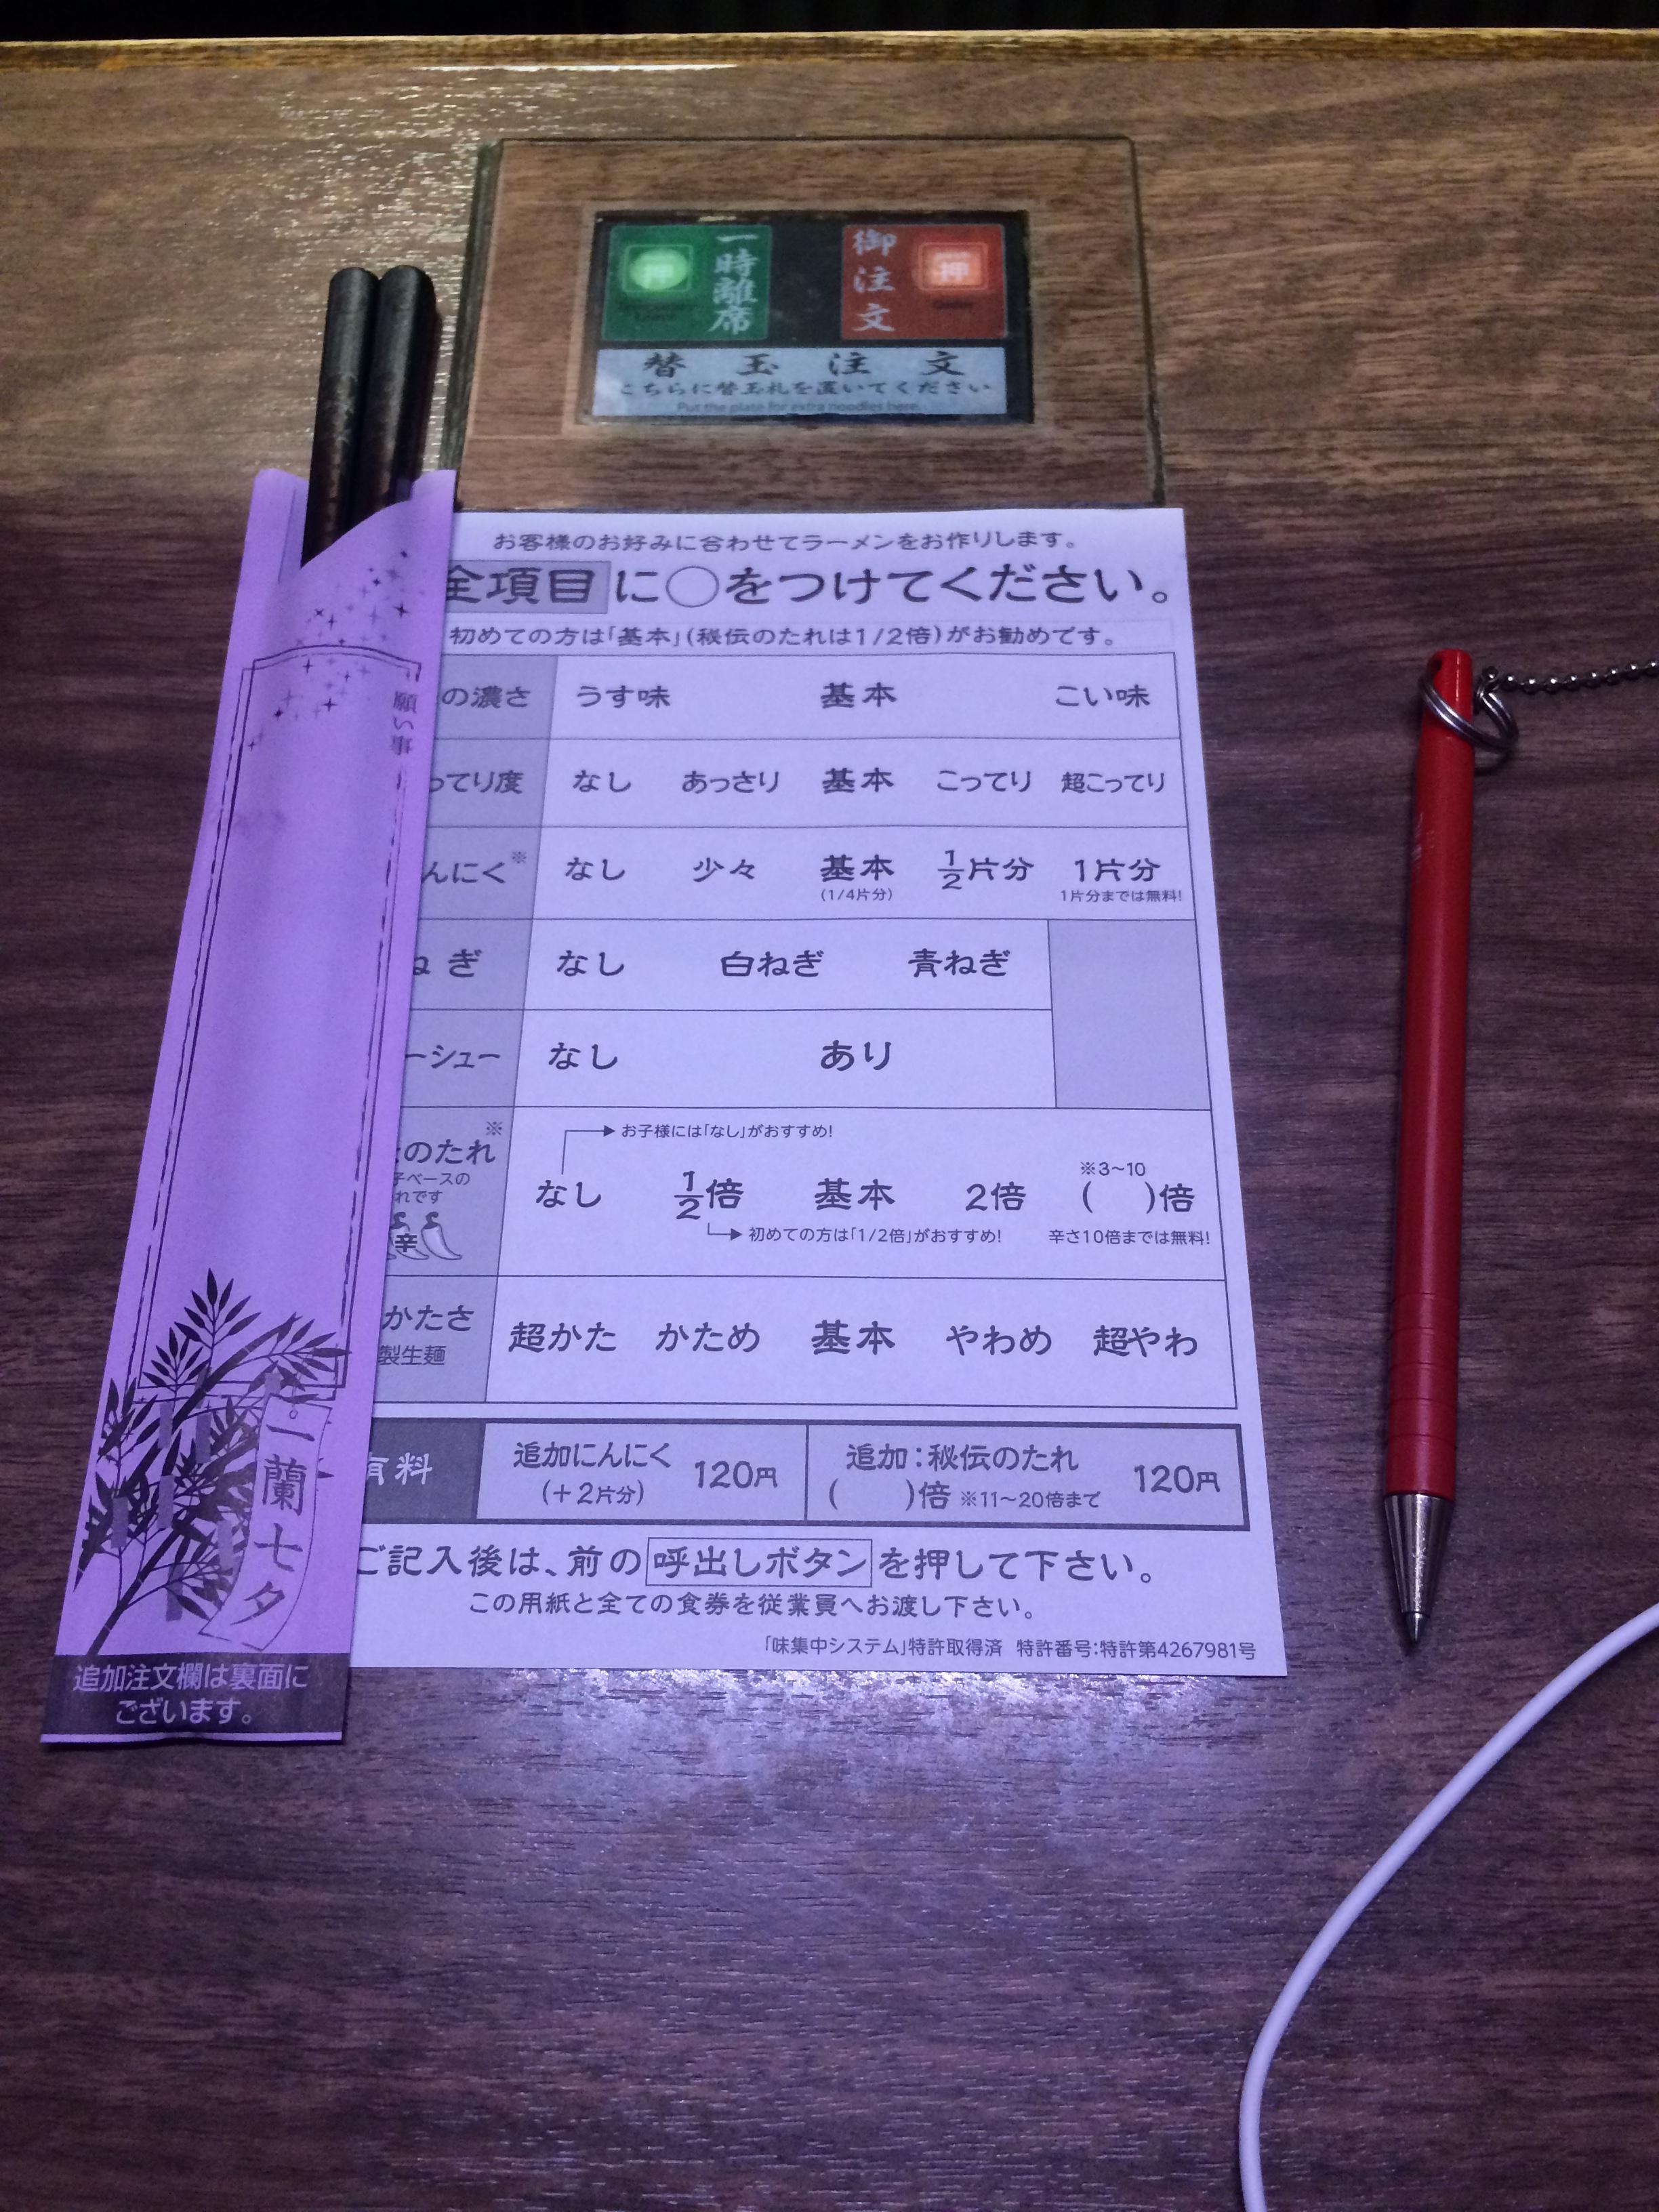 押
一時離席
御注文
押
替玉注文
こちらに替玉札を置いてください
Put the plate for extra noodles here.
お客様のお好みに合わせてラーメンをお作りします。
全項目に○をつけてください。
初めての方は「基本」(秘伝のたれは1/2倍)がお勧めです。
の濃さ うす味 基本 こい味
ってり度 なし あっさり 基本 こってり 超こってり
んにく※ なし 少々 基本 1/2片分 1片分
(1/4片分) 1片分までは無料!
ねぎ なし 白ねぎ 青ねぎ
ーシュー なし あり
お子様には「なし」がおすすめ!
のたれ※ なし 1/2倍 基本 2倍 ※3~10 ( )倍
ベースの
れです
辛
初めての方は「1/2倍」がおすすめ! 辛さ10倍までは無料!
かたさ 超かた かため 基本 やわめ 超やわ
製生麺
有料 追加にんにく (+2片分) 120円 追加:秘伝のたれ ( )倍 ※11~20倍まで 120円
ご記入後は、前の呼出しボタンを押して下さい。
この用紙と全ての食券を従業員へお渡し下さい。
「味集中システム」特許取得済 特許番号:特許第4267981号
願い事
一蘭七夕
追加注文欄は裏面に
ございます。